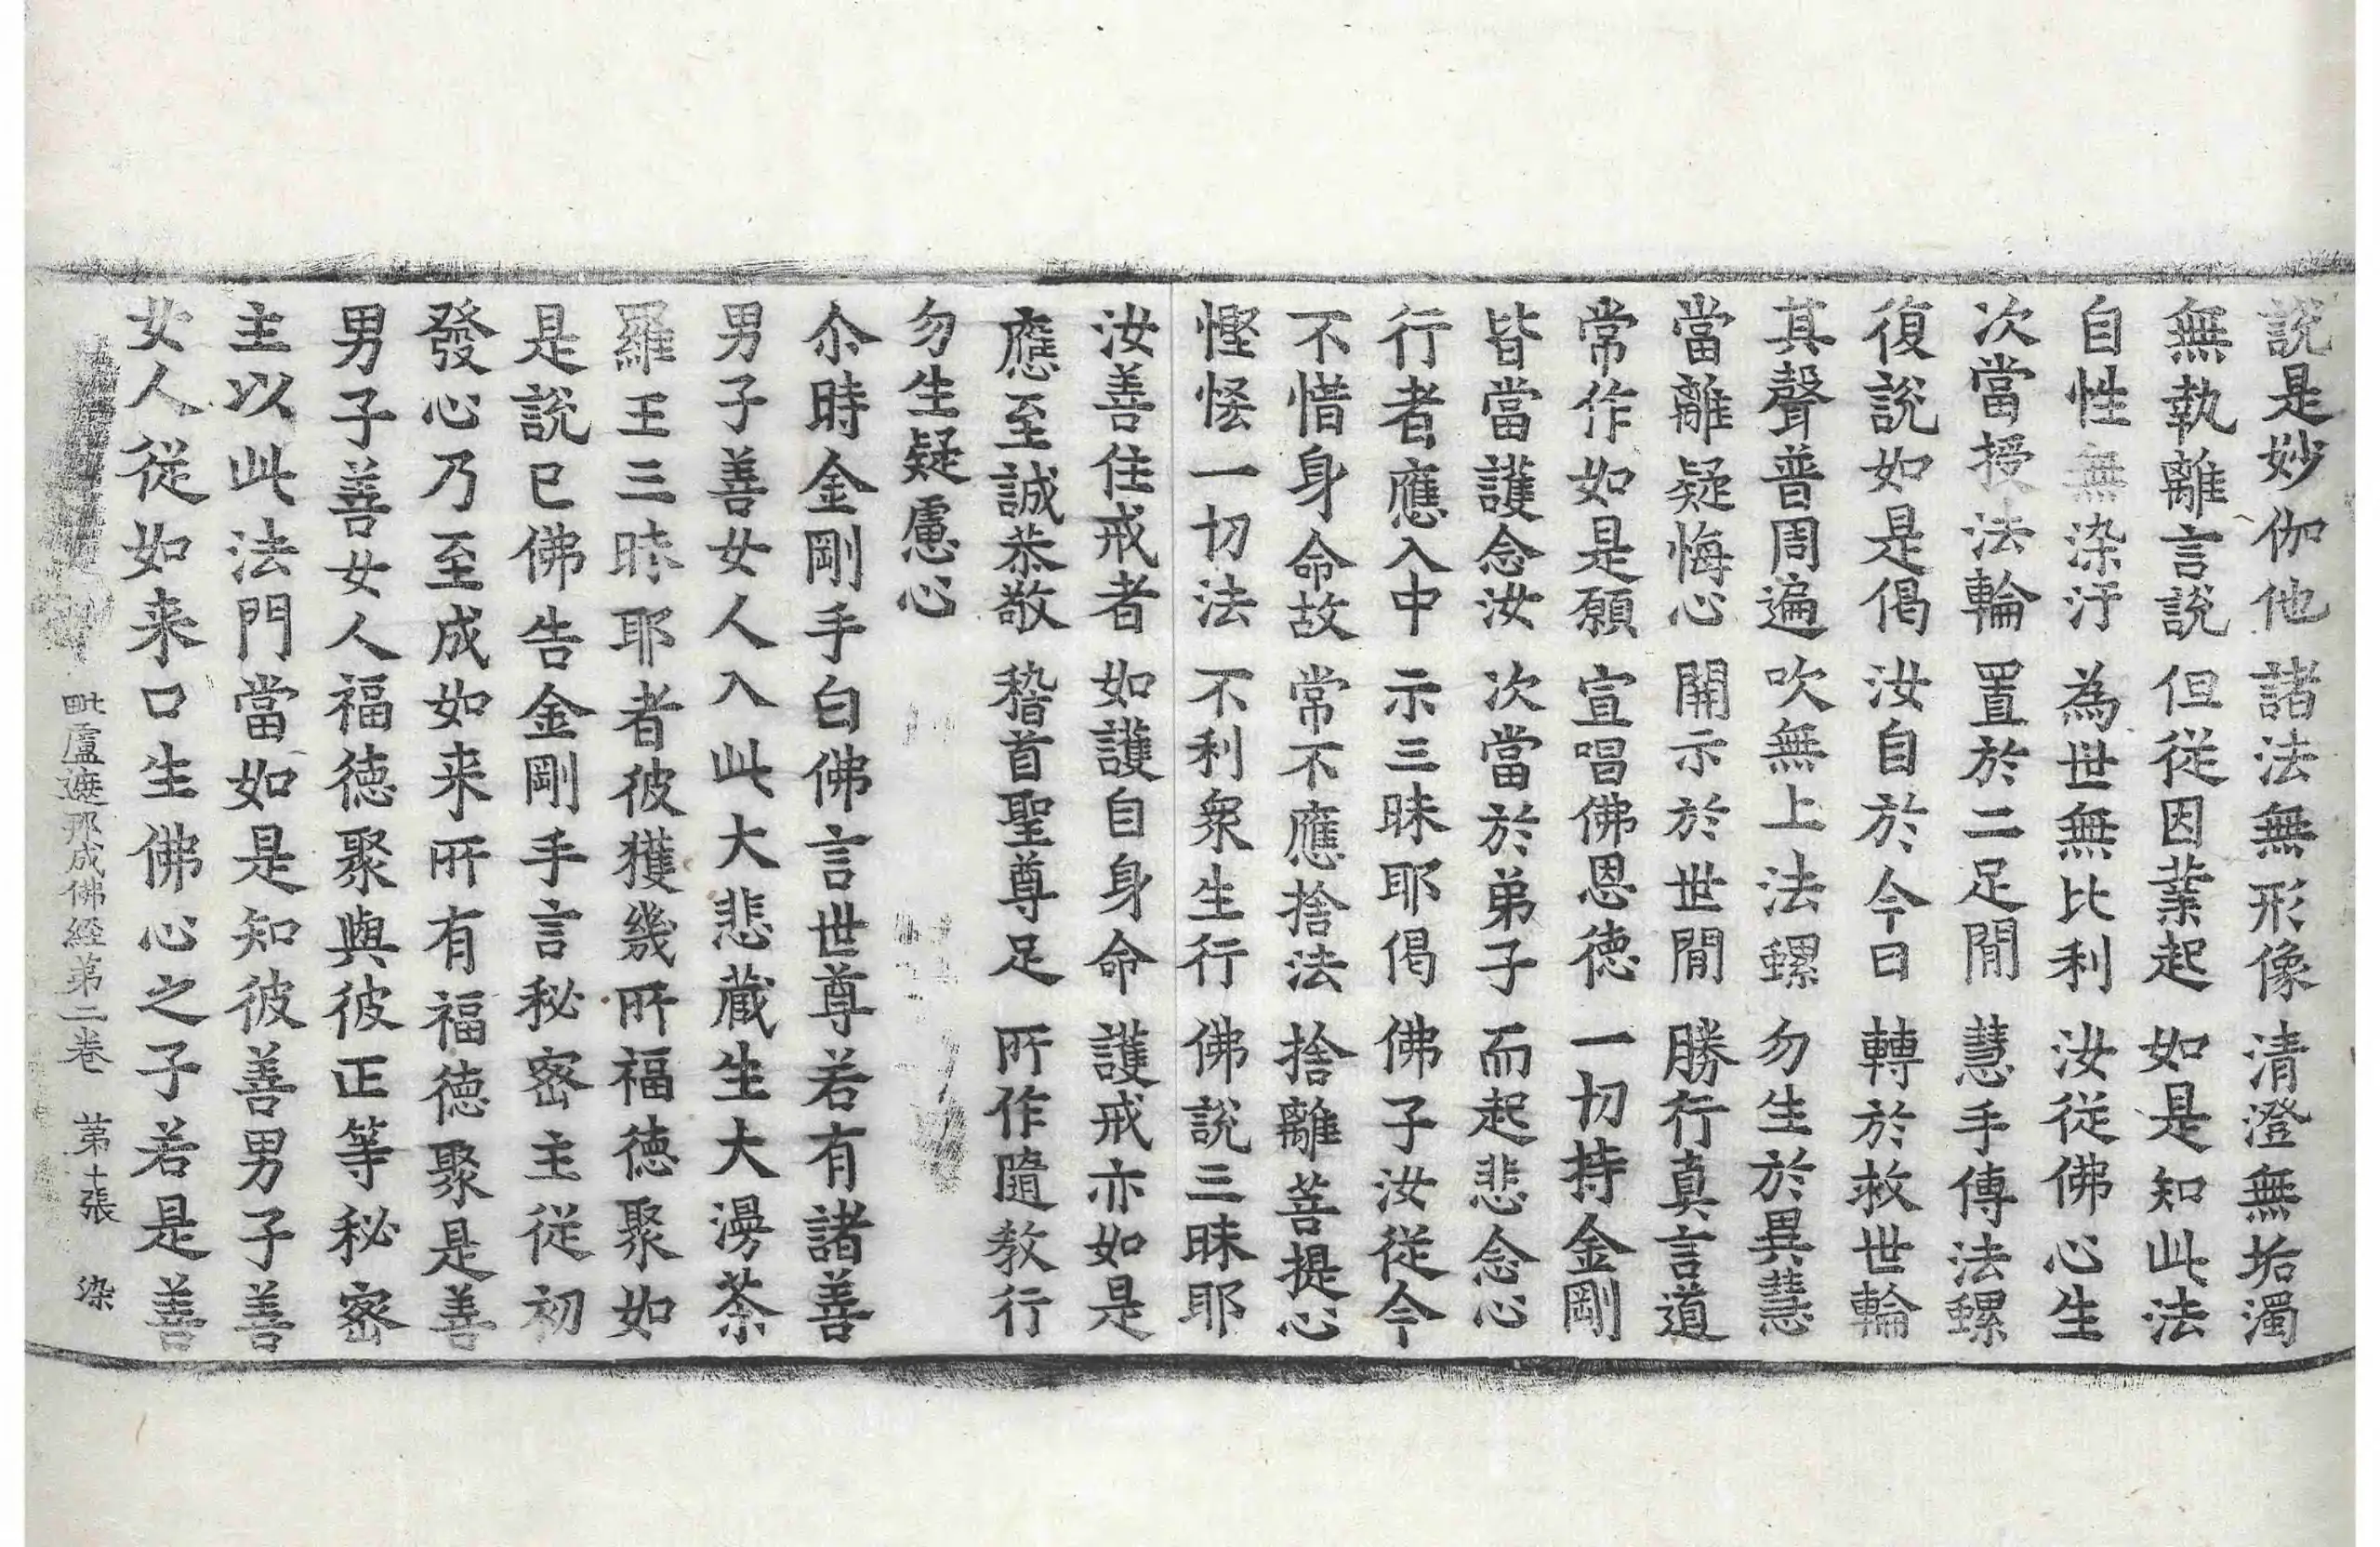 說是妙伽他　諸法無形像　清澄無垢濁
無執離言說　但從因業起　如是知此法
自性無染汙　為世無比利　汝從佛心生
次當授法輪　置於二足閒　慧手傳法螺
復說如是偈　汝自於今日　轉於救世輪
其聲普周遍　吹無上法螺　勿生於異慧
當離疑悔心　開示於世閒　勝行真言道
常作如是願　宣唱佛恩德　一切持金剛
皆當護念汝　次當於弟子　而起悲念心
行者應入中　示三昧耶偈　佛子汝從今
不惜身命故　常不應捨法　捨離菩提心
慳悋一切法　不利衆生行　佛說三昧耶
汝善住戒者　如護自身命　護戒亦如是
應至誠恭敬　稽首聖尊足　所作隨教行
勿生疑慮心
尒時金剛手白佛言世尊若有諸善
男子善女人入此大悲藏生大漫荼
羅王三昧耶者彼獲幾所福德聚如
是說已佛告金剛手言秘密主從初
發心乃至成如来所有福德聚是善
男子善女人福德聚與彼正等秘密
主以此法門當如是知彼善男子善
女人從如来口生佛心之子若是善
毗盧遮那成佛経第二卷　第十張　染